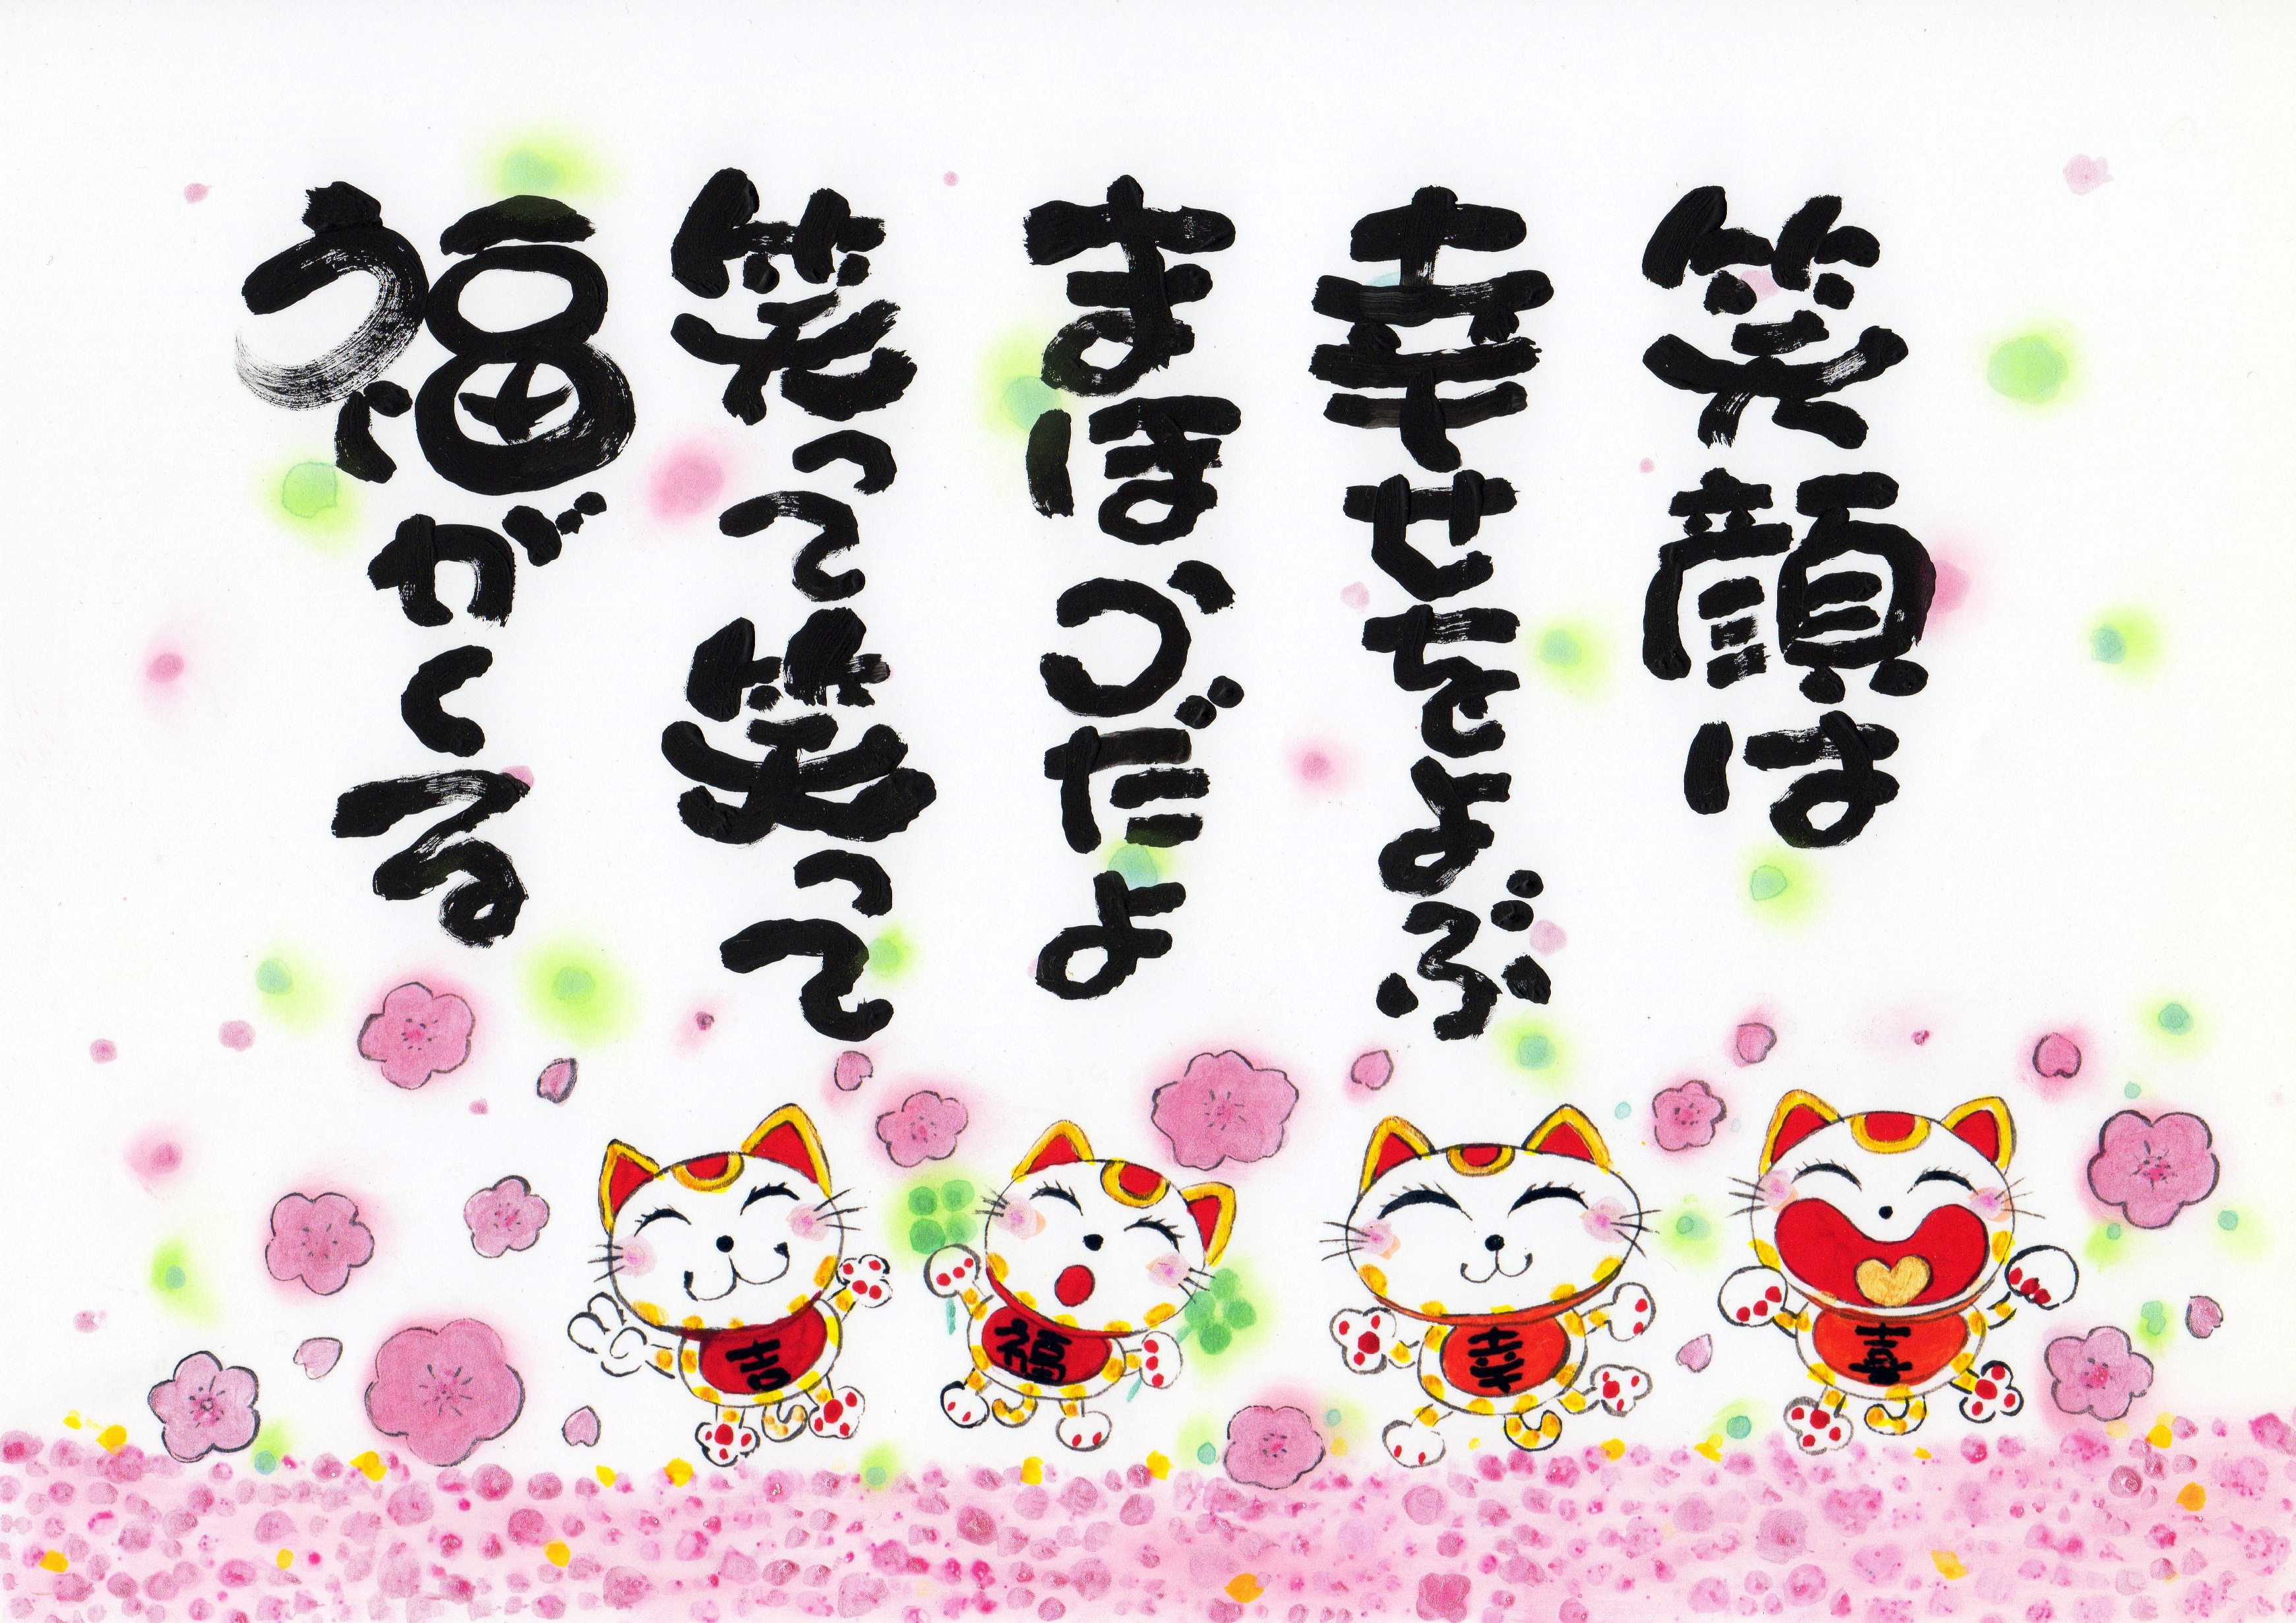 笑顔は
幸せをよぶ
まほうだよ
笑って笑って
福がくる
吉
福
幸
喜